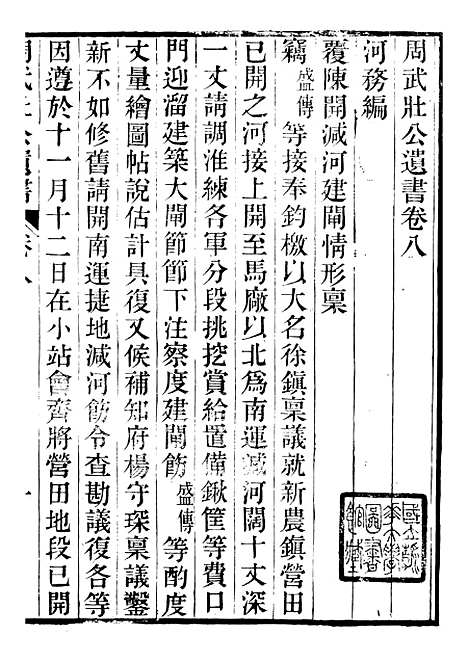 周武壯公遺書卷八
河務編
覆陳開減河建閘情形稟
竊盛傳等接奉鈞檄以大名徐鎮稟議就新農鎮營田
已開之河接上開至馬廠以北爲南運減河闊十丈深
一丈請調淮練各軍分段挑挖賞給置備鍬筐等費口
門迎溜建築大閘節節下注察度建閘飭盛傳等酌度
丈量繪圖帖說估計具復又候補知府楊守琛稟議鑿
新不如修舊請開南運捷地減河飭令查勘議復各等
因遵於十一月十二日在小站會齊將營田地段已開
周武壯公遺書 卷八 一